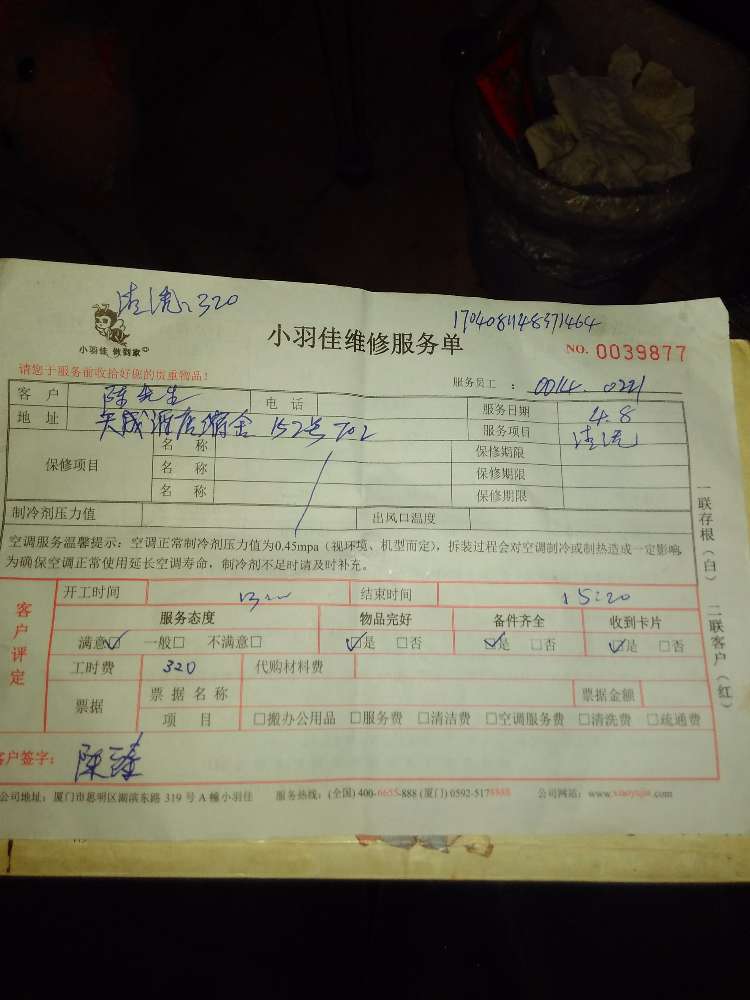 320
170408148371464
小羽佳 做到家
小羽佳维修服务单
NO. 0039877
请您于服务前收拾好您的贵重物品!
服务员工 : 0014. 0221
客 户 陈先生 电 话 服务日期 4.8
地 址 152号 702 服务项目 清洗
保修项目
名 称 保修期限
名 称 保修期限
名 称 保修期限
制冷剂压力值 出风口温度
空调服务温馨提示:空调正常制冷剂压力值为0.45mpa(视环境、机型而定),拆装过程会对空调制冷或制热造成一定影响
为确保空调正常使用延长空调寿命,制冷剂不足时请及时补充。
开工时间 结束时间 15:20
客户评定
服务态度 物品完好 备件齐全 收到卡片
满意☑ 一般□ 不满意□ ☑是 □否 ☑是 □否 ☑是 □否
工时费 320 代购材料费
票据 票 据 名 称 票据金额
项 目 □搬办公用品 □服务费 □清洁费 □空调服务费 □清洗费 □疏通费
客户签字: 陈
公司地址:厦门市思明区湖滨东路 319 号 A 幢小羽佳 服务热线:(全国) 400-6655-888 (厦门) 0592-5178888 公司网站:www.xiaoyujia.com
一联存根(白) 二联客户(红)